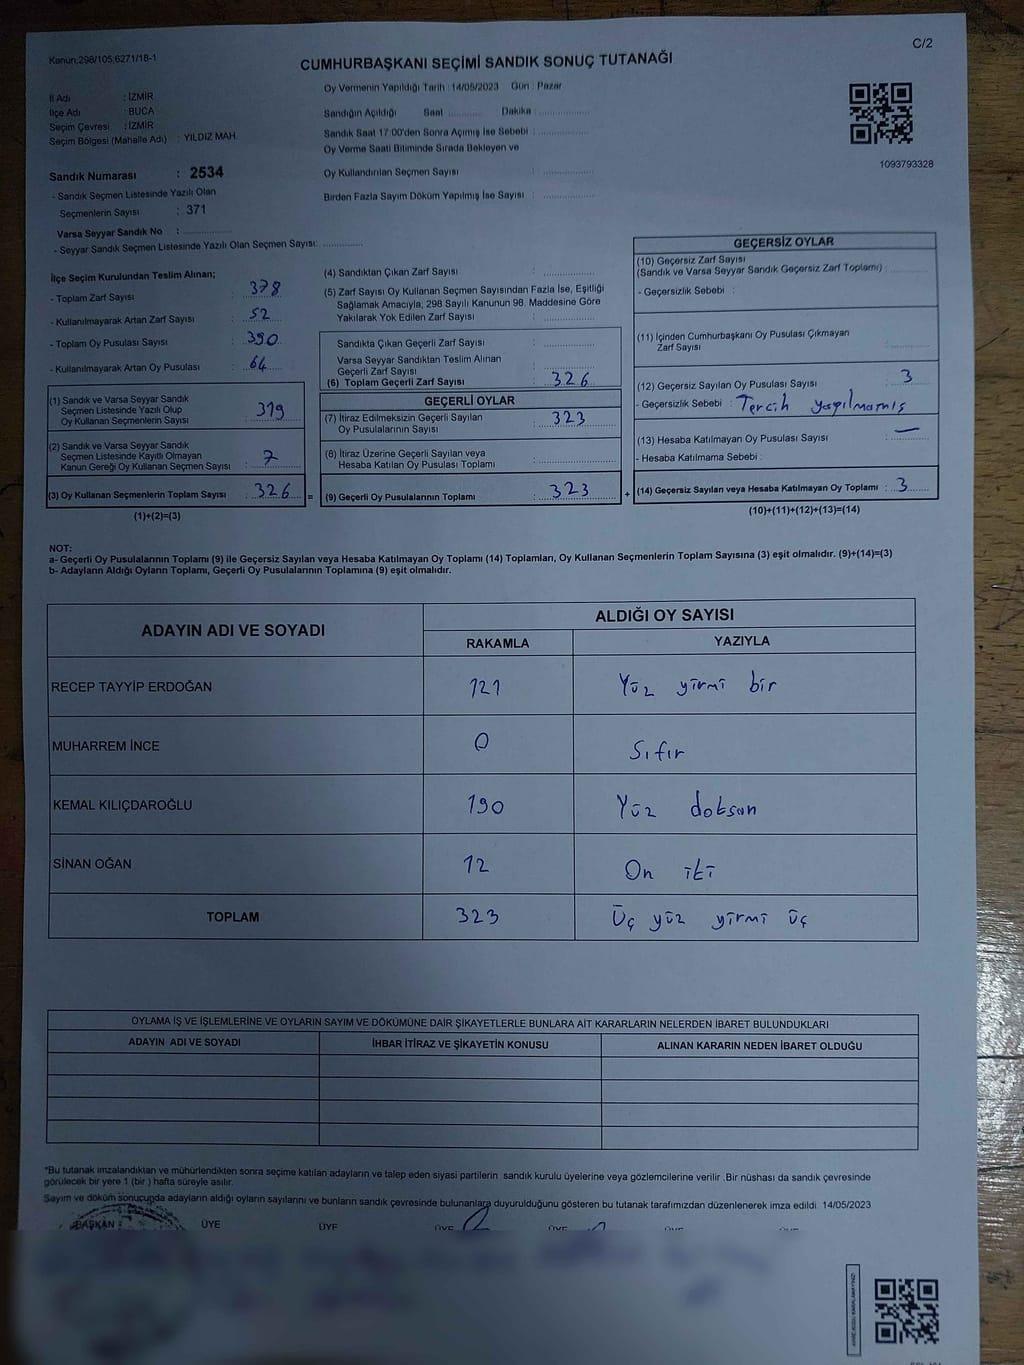 Kanun,298/105,6271/18-1
C/2
CUMHURBAŞKANI SEÇİMİ SANDIK SONUÇ TUTANAĞI
Oy Vermenin Yapıldığı Tarih : 14/05/2023 Gün : Pazar
İl Adı : İZMİR
İlçe Adı : BUCA
Seçim Çevresi : İZMİR
Seçim Bölgesi (Mahalle Adı) : YILDIZ MAH.
Sandığın Açıldığı Saat ............ Dakika : ............
Sandık Saat 17:00'den Sonra Açımış İse Sebebi : ............
Oy Verme Saati Bitiminde Sırada Bekleyen ve
Oy Kullandırılan Seçmen Sayısı : ............
Birden Fazla Sayım Döküm Yapılmış İse Sayısı : ............
1093793328
Sandık Numarası : 2534
- Sandık Seçmen Listesinde Yazılı Olan
Seçmenlerin Sayısı : 371
Varsa Seyyar Sandık No : ............
- Seyyar Sandık Seçmen Listesinde Yazılı Olan Seçmen Sayısı: ............
İlçe Seçim Kurulundan Teslim Alınan;
- Toplam Zarf Sayısı : 378
- Kullanılmayarak Artan Zarf Sayısı : 52
- Toplam Oy Pusulası Sayısı : 390
- Kullanılmayarak Artan Oy Pusulası : 64
(1) Sandık ve Varsa Seyyar Sandık
Seçmen Listesinde Yazılı Olup
Oy Kullanan Seçmenlerin Sayısı : 319
(2) Sandık ve Varsa Seyyar Sandık
Seçmen Listesinde Kayıtlı Olmayan
Kanun Gereği Oy Kullanan Seçmen Sayısı : 7
(3) Oy Kullanan Seçmenlerin Toplam Sayısı : 326 =
(1)+(2)=(3)
(4) Sandıktan Çıkan Zarf Sayısı : ............
(5) Zarf Sayısı Oy Kullanan Seçmen Sayısından Fazla İse, Eşitliği
Sağlamak Amacıyla, 298 Sayılı Kanunun 98. Maddesine Göre
Yakılarak Yok Edilen Zarf Sayısı : ............
Sandıkta Çıkan Geçerli Zarf Sayısı : ............
Varsa Seyyar Sandıktan Teslim Alınan
Geçerli Zarf Sayısı : ............
(6) Toplam Geçerli Zarf Sayısı : 326
GEÇERLİ OYLAR
(7) İtiraz Edilmeksizin Geçerli Sayılan
Oy Pusulalarının Sayısı : 323
(8) İtiraz Üzerine Geçerli Sayılan veya
Hesaba Katılan Oy Pusulası Toplamı : ............
(9) Geçerli Oy Pusulalarının Toplamı : 323 +
GEÇERSİZ OYLAR
(10) Geçersiz Zarf Sayısı
(Sandık ve Varsa Seyyar Sandık Geçersiz Zarf Toplamı) : ............
- Geçersizlik Sebebi :
(11) İçinden Cumhurbaşkanı Oy Pusulası Çıkmayan
Zarf Sayısı : ............
(12) Geçersiz Sayılan Oy Pusulası Sayısı : 3
- Geçersizlik Sebebi : Tercih yapılmamış
(13) Hesaba Katılmayan Oy Pusulası Sayısı : —
- Hesaba Katılmama Sebebi :
(14) Geçersiz Sayılan veya Hesaba Katılmayan Oy Toplamı : 3
(10)+(11)+(12)+(13)=(14)
NOT:
a- Geçerli Oy Pusulalarının Toplamı (9) ile Geçersiz Sayılan veya Hesaba Katılmayan Oy Toplamı (14) Toplamları, Oy Kullanan Seçmenlerin Toplam Sayısına (3) eşit olmalıdır. (9)+(14)=(3)
b- Adayların Aldığı Oyların Toplamı, Geçerli Oy Pusulalarının Toplamına (9) eşit olmalıdır.
ADAYIN ADI VE SOYADI ALDIĞI OY SAYISI
RAKAMLA YAZIYLA
RECEP TAYYİP ERDOĞAN 121 Yüz yirmi bir
MUHARREM İNCE 0 Sıfır
KEMAL KILIÇDAROĞLU 190 Yüz doksan
SİNAN OĞAN 12 On iki
TOPLAM 323 Üç yüz yirmi üç
OYLAMA İŞ VE İŞLEMLERİNE VE OYLARIN SAYIM VE DÖKÜMÜNE DAİR ŞİKAYETLERLE BUNLARA AİT KARARLARIN NELERDEN İBARET BULUNDUKLARI
ADAYIN ADI VE SOYADI İHBAR İTİRAZ VE ŞİKAYETİN KONUSU ALINAN KARARIN NEDEN İBARET OLDUĞU
*Bu tutanak imzalandıktan ve mühürlendikten sonra seçime katılan adayların ve talep eden siyasi partilerin sandık kurulu üyelerine veya gözlemcilerine verilir .Bir nüshası da sandık çevresinde
görülecek bir yere 1 (bir ) hafta süreyle asılır.
Sayım ve döküm sonucunda adayların aldığı oyların sayılarını ve bunların sandık çevresinde bulunanlara duyurulduğunu gösteren bu tutanak tarafımızdan düzenlenerek imza edildi. 14/05/2023
BAŞKAN ÜYE ÜYE ÜYE ÜYE